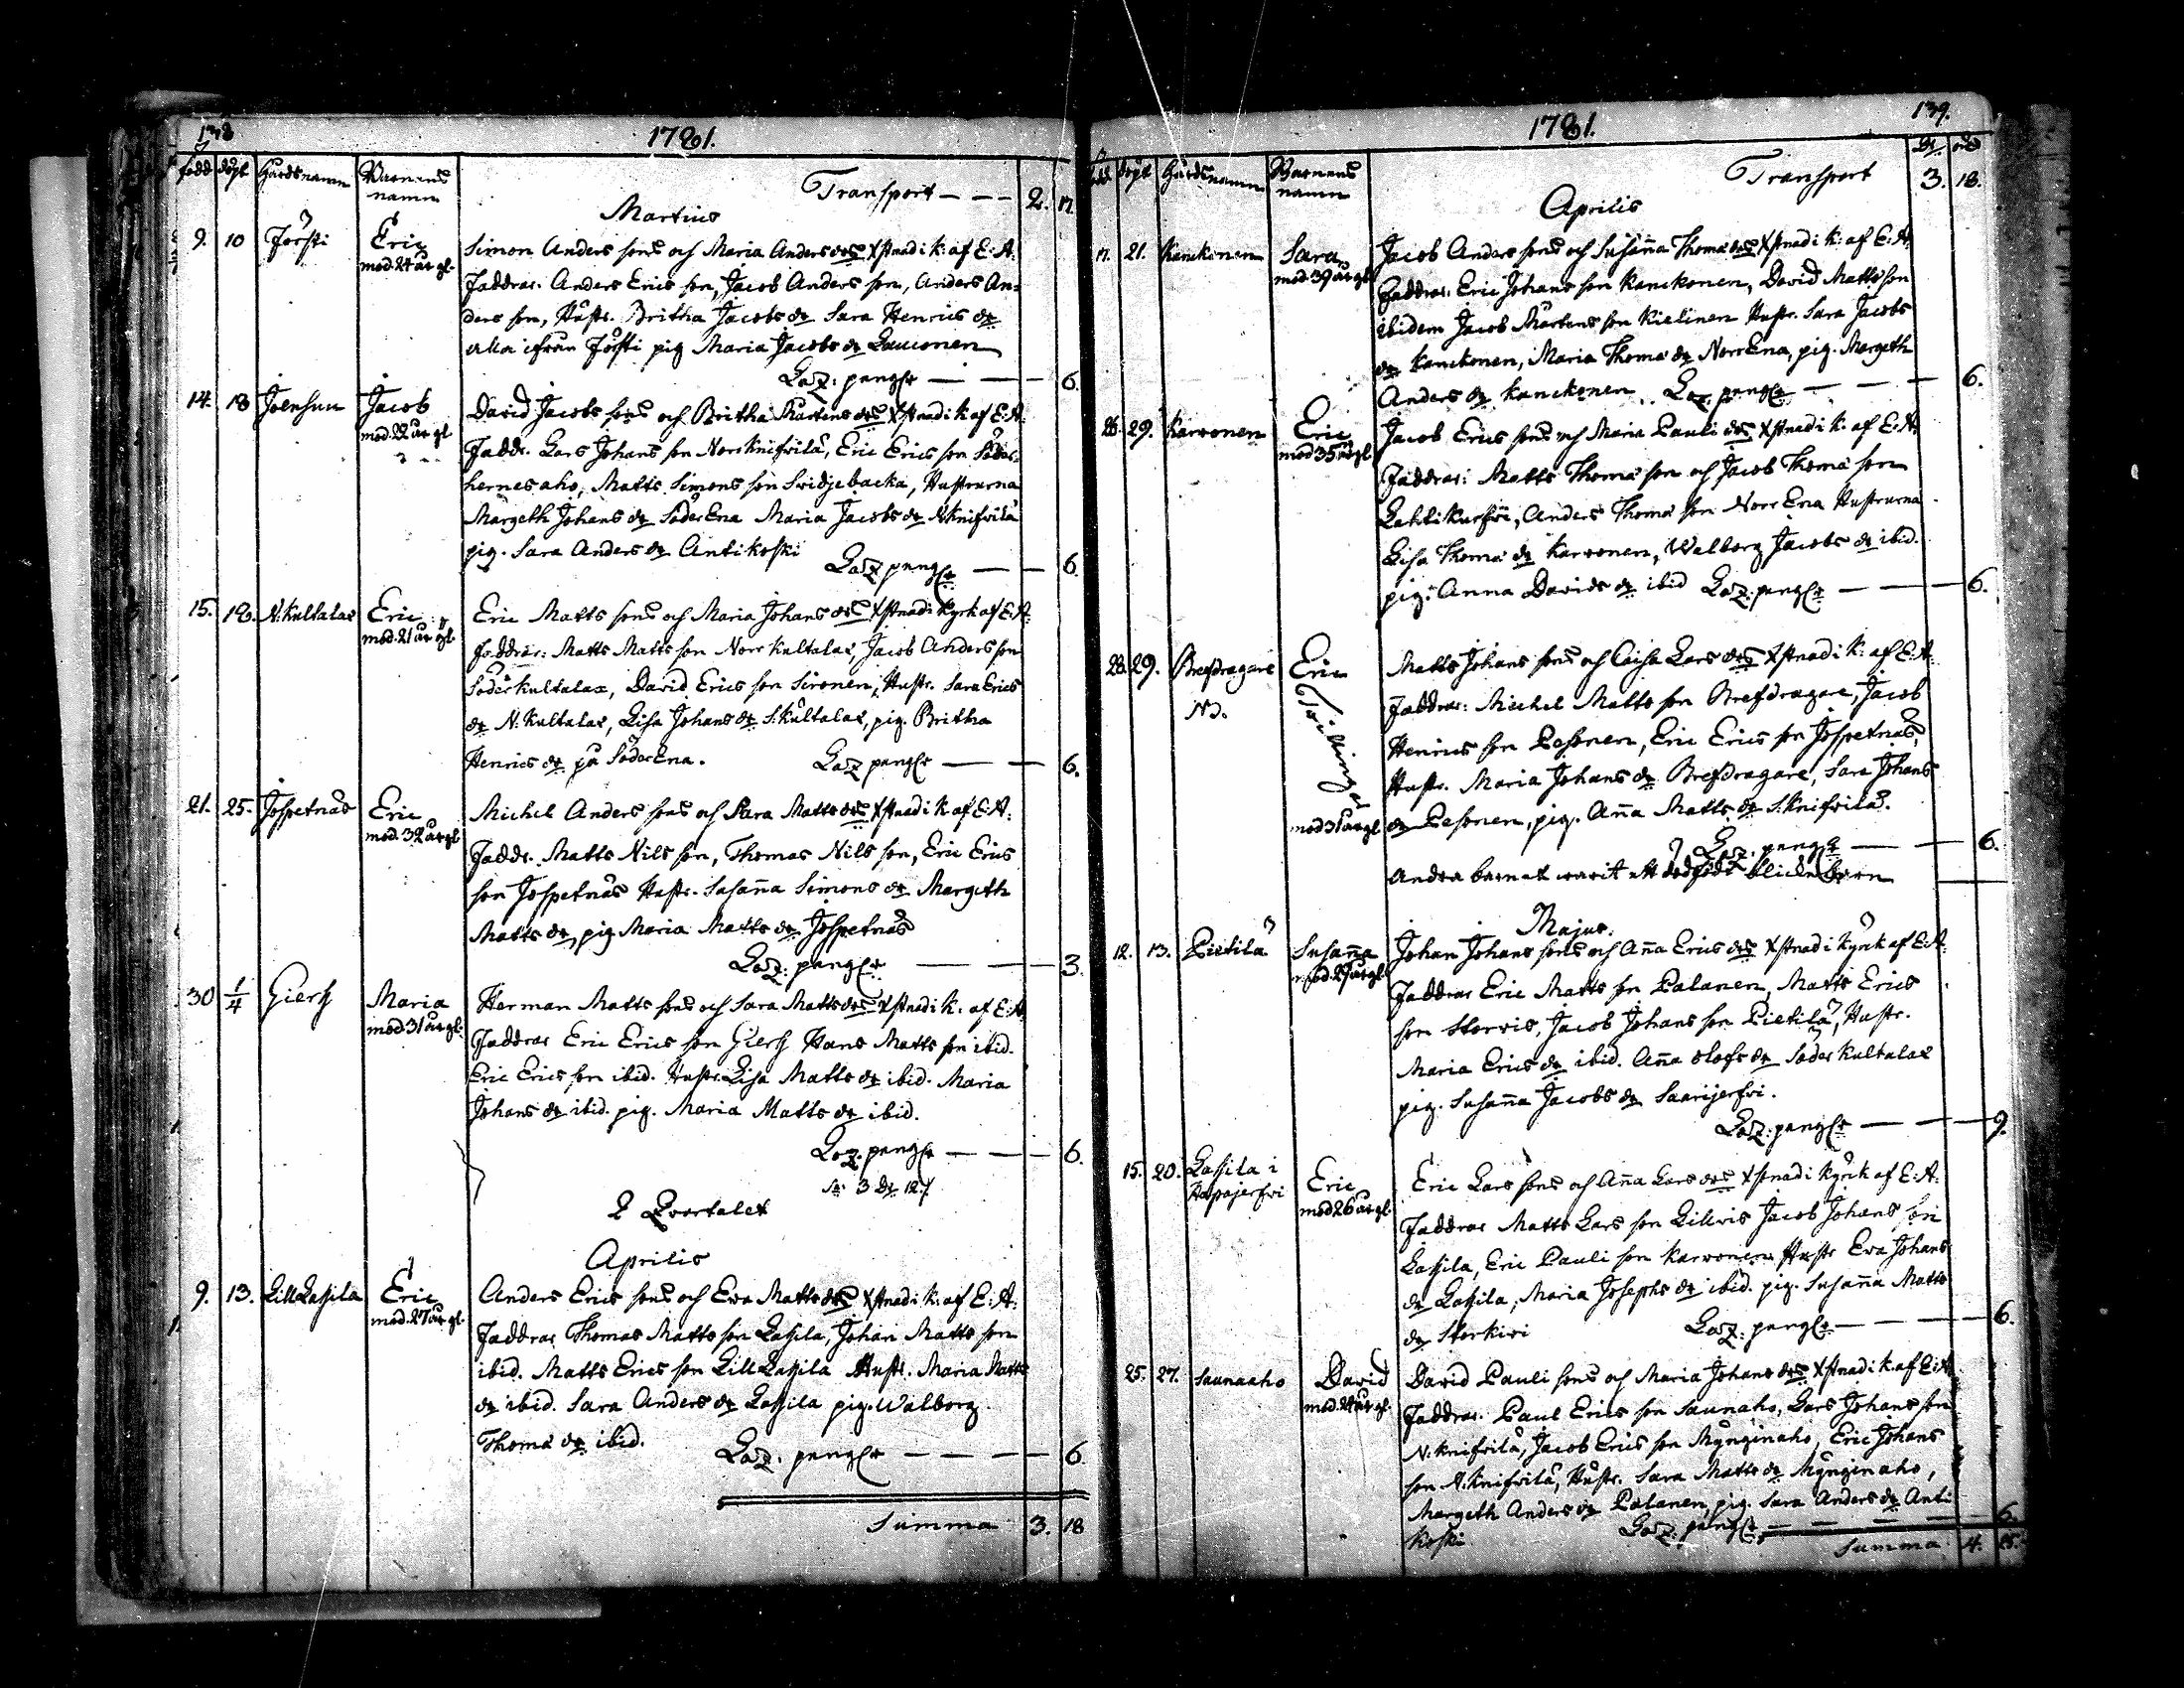 138
1781.
född döpt Gårdsnamn Barnens namn
Transport — — — 2. 17.
Martius
9. 10 Jorfti Eric Simon Anders sons och Maria Anders drs Xstnad i k: af E: A:
mod. 24 år gl. Faddrar. Anders Erics son, Jacob Anders son, Anders An=
ders son, Hustr. Britha Jacobs dr Sara Henrics dr
alla ifrån Jorfti pig Maria Jacobs dr Lauconen
Laz: pengr — — — 6.
14. 18 Joensuu Jacob David Jacobs sons och Britha Mårtens drs Xstnad i k. af E: A:
mod. 22 år gl Faddr. Lars Johans son Norrknifvilä, Eric Erics son Söder=
hernesaho, Matts Simons son Svidjebacka, Hustrurna
Margeth Johans dr SöderEna Maria Jacobs dr N:knifvilä
pig. Sara Anders dr Antikoski Laz pengr — — 6.
15. 18. N:kultalax Eric Eric Matts sons och Maria Johans drs Xstnad i kyrk af E: A:
mod. 21 år gl. Faddrar: Matts Matts son Norrkultalax, Jacob Anders son
Söderkultalax, David Erics son Sironen, Hustr. Sara Erics
dr N. kultalax, Lisa Johans dr S:kultalax, pig. Britha
Henrics dr på SöderEna. Laz pengr — — 6.
21. 25. Jospetnäs Eric Michel Anders sons och Sara Matts drs Xstnad i k. af E: A:
mod. 32 år gl Faddr. Matts Nils son, Thomas Nils son, Eric Erics
son Jospetnäs Hustr. Susanna Simons dr Margeth
Matts dr, pig Maria Matts dr Jospetnäs
Laz: pengr — — 3.
30 1/4 Giers Maria Herman Matts sons och Sara Matts drs Xstnad i k. af E: A.
mod. 31 år gl. Faddrar Eric Erics son Giers Hans Matts son ibid.
Eric Erics son ibid. Hustr. Lisa Matts dr ibid. Maria
Johans dr ibid. pig. Maria Matts dr ibid.
Laz. pengr — — — 6.
Sa: 3 Dr 12./.
2 Qvartalet
Aprilis
9. 13. LillLassila Eric Anders Erics sons och Eva Matts drs Xstnad i k: af E: A:
mod. 27 år gl. Faddrar Thomas Matts son Lassila, Johan Matts son
ibid. Matts Erics son LillLassila Hustr. Maria Matts
dr ibid. Sara Anders dr Lassila pig. Walborg
Thomæ dr ibid. Laz. pengr — — — 6
Summa 3. 18
139.
1781.
född döpt Gårdsnamn Barnens namn
Transport 3. 18.
Aprilis
17. 21. Kanckonen Sara Jacob Anders sons och Susanna Thomæ drs Xstnad i k: af E: A.
mod. 39 år gl Faddrar. Eric Johans son Kanckonen, David Matts son
ibidem Jacob Mårtens son Kielinen Hustr. Sara Jacobs
dr Kanckonen, Maria Thomæ dr NorrEna, pig. Margeth
Anders dr Kanckonen. Laz. pengr — — — 6.
26. 29. Karvonen Eric Jacob Erics sons och Maria Pauli drs Xstnad i k. af E: A:
mod 35 år gl Faddrar: Matts Thomæ son och Jacob Thomæ son
Lahtikurfvi, Anders Thomæ son NorrEna Hustrurna
Lisa Thomæ dr Karvonen, Walborg Jacobs dr ibid.
pig. Anna Davids dr ibid Laz. pengr — — — 6.
28. 29. Brefdragare Eric Matts Johans sons och Caisa Lars drs Xstnad i k: af E: A:
No. Tvillingar Faddrar: Michel Matts son Brefdragare, Jacob
Henrics son Pesonen, Eric Erics son Jospetnäs,
Hustr. Maria Johans dr Brefdragare, Sara Johans
mod 31 år gl dr Pesonen, pig. Anna Matts dr S:knifvilä.
Laz. pengr — — 6.
Andra barnet warit ett dödfödt flickebarn
Majus.
12. 13. Pietilä Susanna Johan Johans sons och Anna Erics drs Xstnad i kyrck af E: A:
mod. 29 år gl Faddrar Eric Matts son Palanen, Matts Erics
son Storvis, Jacob Johans son Pietilä, Hustr.
Maria Erics dr ibid. Anna Olofs dr Söderkultalax
pig. Susanna Jacobs dr Saarijerfvi.
Laz: pengr — — 9.
15. 20. Lassila i Hapajerfvi Eric Eric Lars sons och Anna Lars drs Xstnad i kyrck af E: A:
mod 26 år gl. Faddrar Matts Lars son Lillvis Jacob Johans son
Lassila, Eric Pauli son Karvonen Hustr Eva Johans
dr Lassila, Maria Josephs dr ibid. pig. Susanna Matts
dr Storkivi Laz: pengr — — — 6.
25. 27. Saunaaho David David Pauli sons och Maria Johans drs Xstnad i k af E: A
mod. 24 år gl. Faddrar. Paul Erics son Saunaho, Lars Johans son
N:knifvilä, Jacob Erics son Mynginaho, Eric Johans
son N:knifvilä, Hustr. Sara Matts dr Mynginaho,
Margeth Anders dr Palanen, pig. Sara Anders dr Anti
koski Laz. pengr — — — — 6.
Summa 4. 15.